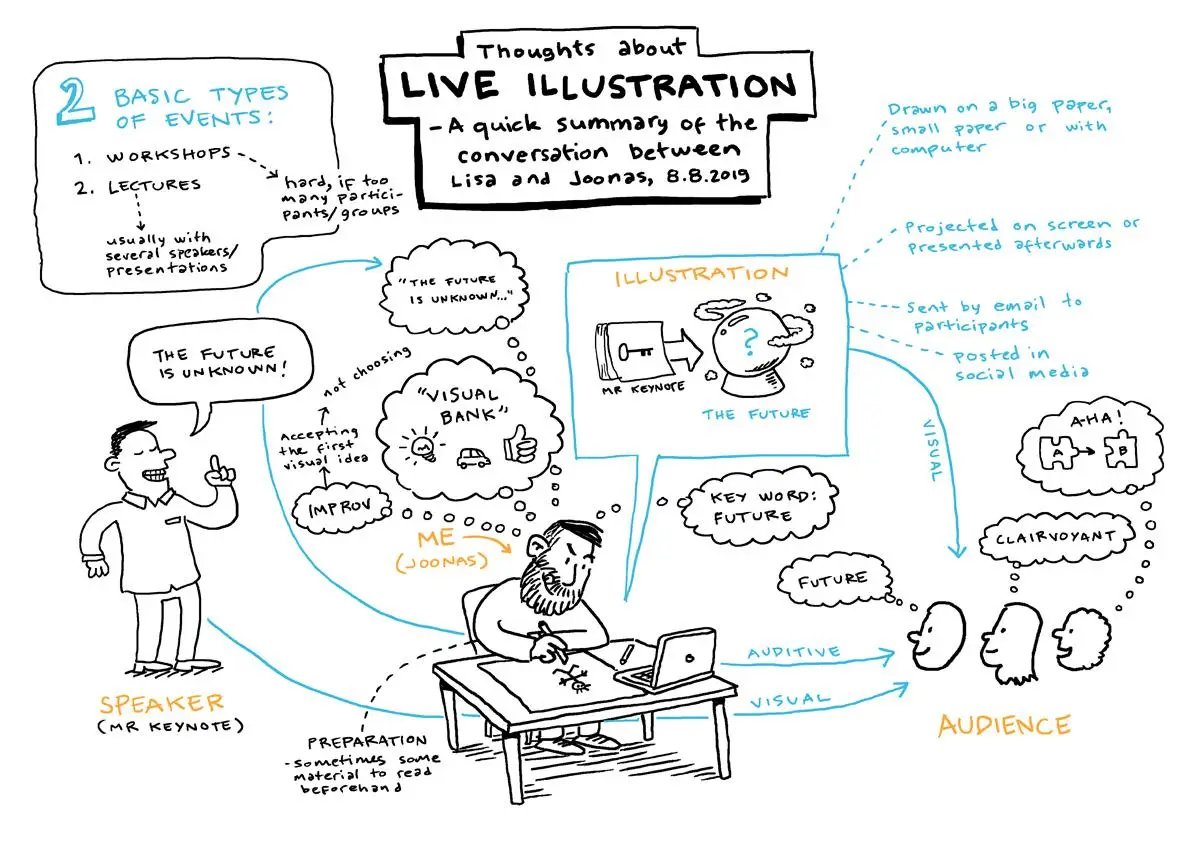 Thoughts about
LIVE ILLUSTRATION
- A quick summary of the
conversation between
Lisa and Joonas, 8.8.2019
2 BASIC TYPES
OF EVENTS:
1. WORKSHOPS
2. LECTURES
hard, if too
many partici-
pants/groups
usually with
several speakers/
presentations
THE FUTURE
IS UNKNOWN!
SPEAKER
(MR KEYNOTE)
"THE FUTURE
IS UNKNOWN..."
not choosing
Accepting
the first
visual idea
IMPROV
"VISUAL
BANK"
ME
(JOONAS)
PREPARATION
- sometimes some
material to read
beforehand
ILLUSTRATION
MR KEYNOTE
?
THE FUTURE
KEY WORD:
FUTURE
Drawn on a big paper,
small paper or with
computer
Projected on screen or
presented afterwards
Sent by email to
participants
posted in
social media
VISUAL
AUDITIVE
VISUAL
A-HA!
A
B
CLAIRVOYANT
FUTURE
AUDIENCE